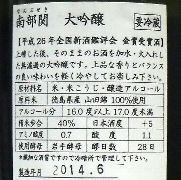 なんぶぜき
南部関 大吟醸 要冷蔵
【平成26年全国新酒鑑評会 金賞受賞酒】
上槽した後、そのままのお酒を加水・火入れし
た無濾過の大吟醸です。上品な香りとバランス
の良い味わいを軽く冷やしてお楽しみ下さい。
原材料 米・米こうじ・醸造アルコール
原料米 徳島県産 山田錦 100%使用
アルコール分 16.0度以上 17.0度未満
精米歩合 40% 日本酒度 +5
アミノ酸度 0.7 酸度 1.1
使用酵母 岩手酵母 醪日数 28日
※風味な酒質ですので冷暗所で管理して下さい。
製造年月 2014.6